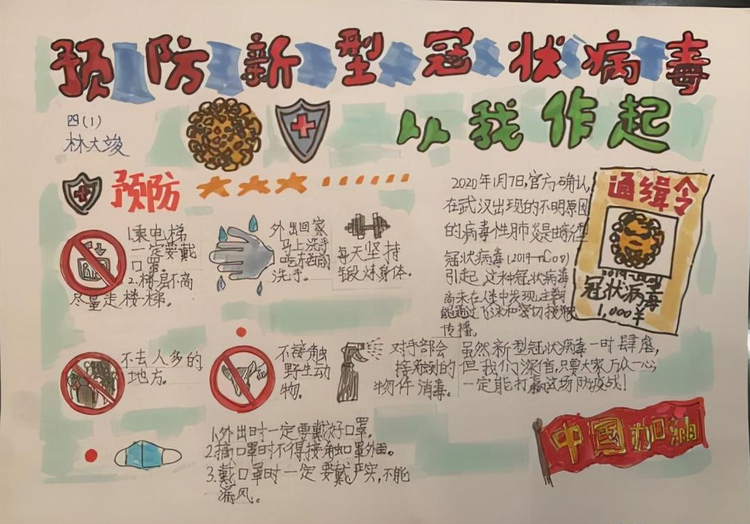 预防新型冠状病毒
从我作起
四(1)
林大竣
预防
1.乘电梯
一定要戴
口罩。
2.楼层不高
尽量走楼梯。
外出回家
马上洗手
吃东西前
洗手。
每天坚持
锻炼身体。
2020年1月7日,官方确认,
在武汉出现的不明原因
的病毒性肺炎是由新型
冠状病毒(2019-nCoV)
引起,这种冠状病毒
尚未在人体中发现,主要
能通过飞沫和密切接触
传播。
通缉令
冠状病毒
1,000¥
不去人多的
地方。
不接触
野生动
物。
对手部会
接触到的
物件消毒。
虽然新型冠状病毒一时肆虐,
但我们深信,只要大家万众一心
一定能打赢这场防疫战!
1.外出时一定要戴好口罩。
2.摘口罩时不得接触口罩外面。
3.戴口罩时一定要戴严实,不能
漏风。
中国加油